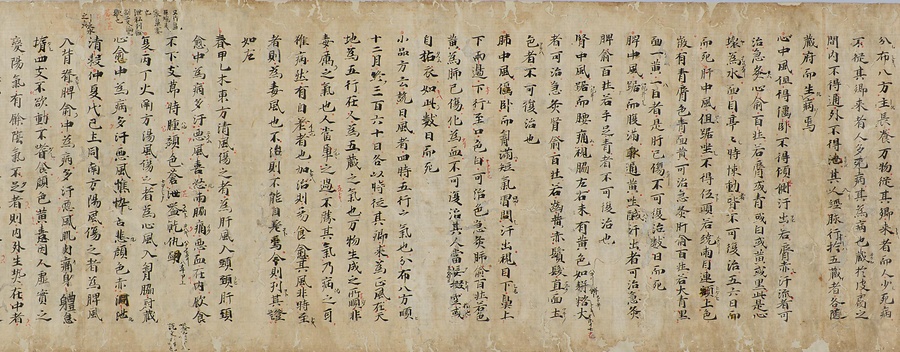 分布八方主長養万物從其鄉來者人少死病
不從其鄉來者人多死病其為病也藏於皮膚之
間內不得通外不得泄其人經脉行於五藏者各隨
藏府而生病焉
心中風但得偃卧不得傾側汗出若脣赤汗流者可
治急灸心俞百壯若脣或青或白或黃或黑此是心
壞為水面目亭々時悚動皆不可復治五六日而
死肝中風但踞坐不得伍頭若繞兩目連額上色
微有青脣色青面黃可治急灸肝俞百壯若大青黑
面一黃一白者是肝已傷不可復治數日而死
脾中風踞而腹滿身通黃吐鹹汁出者可治急灸
脾俞百壯若手足青者不可復治也
腎中風踞而腰痛視脇左右未有黃色如餅粢大
者可治急灸腎俞百壯若齒黃赤鬢髮直面土
色者不可復治也
肺中風偃卧而胷滿短氣冒悶汗出視目下鼻上
下兩邊下行至口色白可治急灸肺俞百壯若色
黃為肺已傷化為血不可復治其人當妄掇空或
自拈衣如此數日而死
小品方云說曰風者四時五行之氣也分布八方順
十二月終三百六十日各以時從其鄉來為正風在天
地為五行在人為五藏之氣也万物生成之所順非
毒厲之氣也人當觸之過不勝其氣乃病之耳
雖病然有自差者也加治則易愈其風非時至
者則為毒風也不治則不能自差焉今則列其證
如左
春甲乙木東方清風傷之者為肝風入頭頸肝俞
俞中為病多汗惡風喜怒兩脇痛惡血在內飲食
不下支節時腫顏色蒼泄嗌乾鼽衄
夏丙丁火南方湯風傷之者為心風入胷脇府藏
心俞中為病多汗惡風憔悴喜悲顏色赤洞泄
清穀仲夏戊己土同南方湯風傷之者為脾風
入背脊脾俞中為病多汗惡風肌肉痛身體怠
墯四支不欲動不嗜食顏色黃盡因人虛實之
變陽氣有餘陰氣不足之者則內外生災在中者